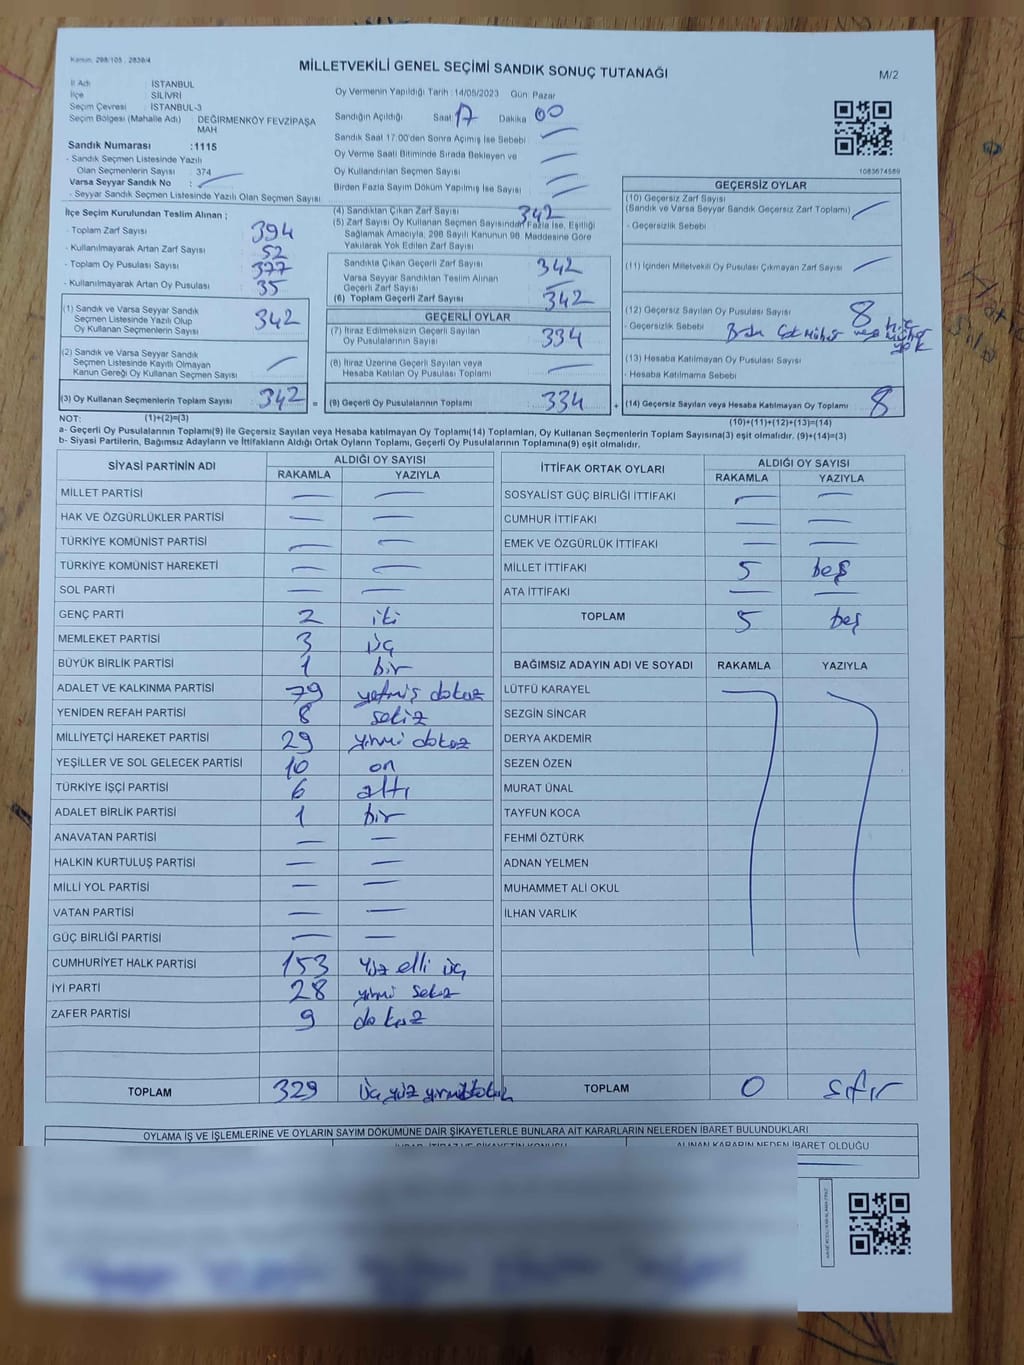 Kanun, 298/105 , 2839/4
MİLLETVEKİLİ GENEL SEÇİMİ SANDIK SONUÇ TUTANAĞI
M/2
İl Adı : İSTANBUL
İlçe : SİLİVRİ
Seçim Çevresi : İSTANBUL-3
Seçim Bölgesi (Mahalle Adı) : DEĞİRMENKÖY FEVZİPAŞA MAH
Sandık Numarası :1115
- Sandık Seçmen Listesinde Yazılı
Olan Seçmenlerin Sayısı : 374
Varsa Seyyar Sandık No : —
- Seyyar Sandık Seçmen Listesinde Yazılı Olan Seçmen Sayısı
Oy Vermenin Yapıldığı Tarih :14/05/2023 Gün: Pazar
Sandığın Açıldığı Saat 17 Dakika 00
Sandık Saat 17:00'den Sonra Açımış İse Sebebi —
Oy Verme Saati Bitiminde Sırada Bekleyen ve
Oy Kullandırılan Seçmen Sayısı —
Birden Fazla Sayım Döküm Yapılmış İse Sayısı —
1083674589
İlçe Seçim Kurulundan Teslim Alınan ;
- Toplam Zarf Sayısı 394
- Kullanılmayarak Artan Zarf Sayısı 52
- Toplam Oy Pusulası Sayısı 377
- Kullanılmayarak Artan Oy Pusulası 35
(1) Sandık ve Varsa Seyyar Sandık
Seçmen Listesinde Yazılı Olup
Oy Kullanan Seçmenlerin Sayısı 342
(2) Sandık ve Varsa Seyyar Sandık
Seçmen Listesinde Kayıtlı Olmayan
Kanun Gereği Oy Kullanan Seçmen Sayısı —
(3) Oy Kullanan Seçmenlerin Toplam Sayısı 342 =
(4) Sandıktan Çıkan Zarf Sayısı 342
(5) Zarf Sayısı Oy Kullanan Seçmen Sayısından Fazla İse, Eşitliği
Sağlamak Amacıyla, 298 Sayılı Kanunun 98. Maddesine Göre
Yakılarak Yok Edilen Zarf Sayısı
Sandıkta Çıkan Geçerli Zarf Sayısı 342
Varsa Seyyar Sandıktan Teslim Alınan
Geçerli Zarf Sayısı —
(6) Toplam Geçerli Zarf Sayısı 342
GEÇERLİ OYLAR
(7) İtiraz Edilmeksizin Geçerli Sayılan
Oy Pusulalarının Sayısı 334
(8) İtiraz Üzerine Geçerli Sayılan veya
Hesaba Katılan Oy Pusulası Toplamı —
(9) Geçerli Oy Pusulalarının Toplamı 334 +
GEÇERSİZ OYLAR
(10) Geçersiz Zarf Sayısı
(Sandık ve Varsa Seyyar Sandık Geçersiz Zarf Toplamı) —
- Geçersizlik Sebebi
(11) İçinden Milletvekili Oy Pusulası Çıkmayan Zarf Sayısı —
(12) Geçersiz Sayılan Oy Pusulası Sayısı 8
- Geçersizlik Sebebi
(13) Hesaba Katılmayan Oy Pusulası Sayısı
- Hesaba Katılmama Sebebi
(14) Geçersiz Sayılan veya Hesaba Katılmayan Oy Toplamı 8
NOT: (1)+(2)=(3) (10)+(11)+(12)+(13)=(14)
a- Geçerli Oy Pusulalarının Toplamı(9) ile Geçersiz Sayılan veya Hesaba katılmayan Oy Toplamı(14) Toplamları, Oy Kullanan Seçmenlerin Toplam Sayısına(3) eşit olmalıdır. (9)+(14)=(3)
b- Siyasi Partilerin, Bağımsız Adayların ve İttifakların Aldığı Ortak Oyların Toplamı, Geçerli Oy Pusulalarının Toplamına(9) eşit olmalıdır.
SİYASİ PARTİNİN ADI ALDIĞI OY SAYISI
RAKAMLA YAZIYLA
MİLLET PARTİSİ — —
HAK VE ÖZGÜRLÜKLER PARTİSİ — —
TÜRKİYE KOMÜNİST PARTİSİ — —
TÜRKİYE KOMÜNİST HAREKETİ — —
SOL PARTİ — —
GENÇ PARTİ 2 iki
MEMLEKET PARTİSİ 3 üç
BÜYÜK BİRLİK PARTİSİ 1 bir
ADALET VE KALKINMA PARTİSİ 79 yetmiş dokuz
YENİDEN REFAH PARTİSİ 8 sekiz
MİLLİYETÇİ HAREKET PARTİSİ 29 yirmi dokuz
YEŞİLLER VE SOL GELECEK PARTİSİ 10 on
TÜRKİYE İŞÇİ PARTİSİ 6 altı
ADALET BİRLİK PARTİSİ 1 bir
ANAVATAN PARTİSİ — —
HALKIN KURTULUŞ PARTİSİ — —
MİLLİ YOL PARTİSİ — —
VATAN PARTİSİ — —
GÜÇ BİRLİĞİ PARTİSİ — —
CUMHURİYET HALK PARTİSİ 153 yüz elli üç
İYİ PARTİ 28 yirmi sekiz
ZAFER PARTİSİ 9 dokuz
TOPLAM 329 üç yüz yirmidokuz
İTTİFAK ORTAK OYLARI ALDIĞI OY SAYISI
RAKAMLA YAZIYLA
SOSYALİST GÜÇ BİRLİĞİ İTTİFAKI — —
CUMHUR İTTİFAKI — —
EMEK VE ÖZGÜRLÜK İTTİFAKI — —
MİLLET İTTİFAKI 5 beş
ATA İTTİFAKI — —
TOPLAM 5 beş
BAĞIMSIZ ADAYIN ADI VE SOYADI RAKAMLA YAZIYLA
LÜTFÜ KARAYEL
SEZGİN SİNCAR
DERYA AKDEMİR
SEZEN ÖZEN
MURAT ÜNAL
TAYFUN KOCA
FEHMİ ÖZTÜRK
ADNAN YELMEN
MUHAMMET ALİ OKUL
İLHAN VARLIK
TOPLAM 0 sıfır
OYLAMA İŞ VE İŞLEMLERİNE VE OYLARIN SAYIM DÖKÜMÜNE DAİR ŞİKAYETLERLE BUNLARA AİT KARARLARIN NELERDEN İBARET BULUNDUKLARI
ALINAN KARARIN NEDEN İBARET OLDUĞU